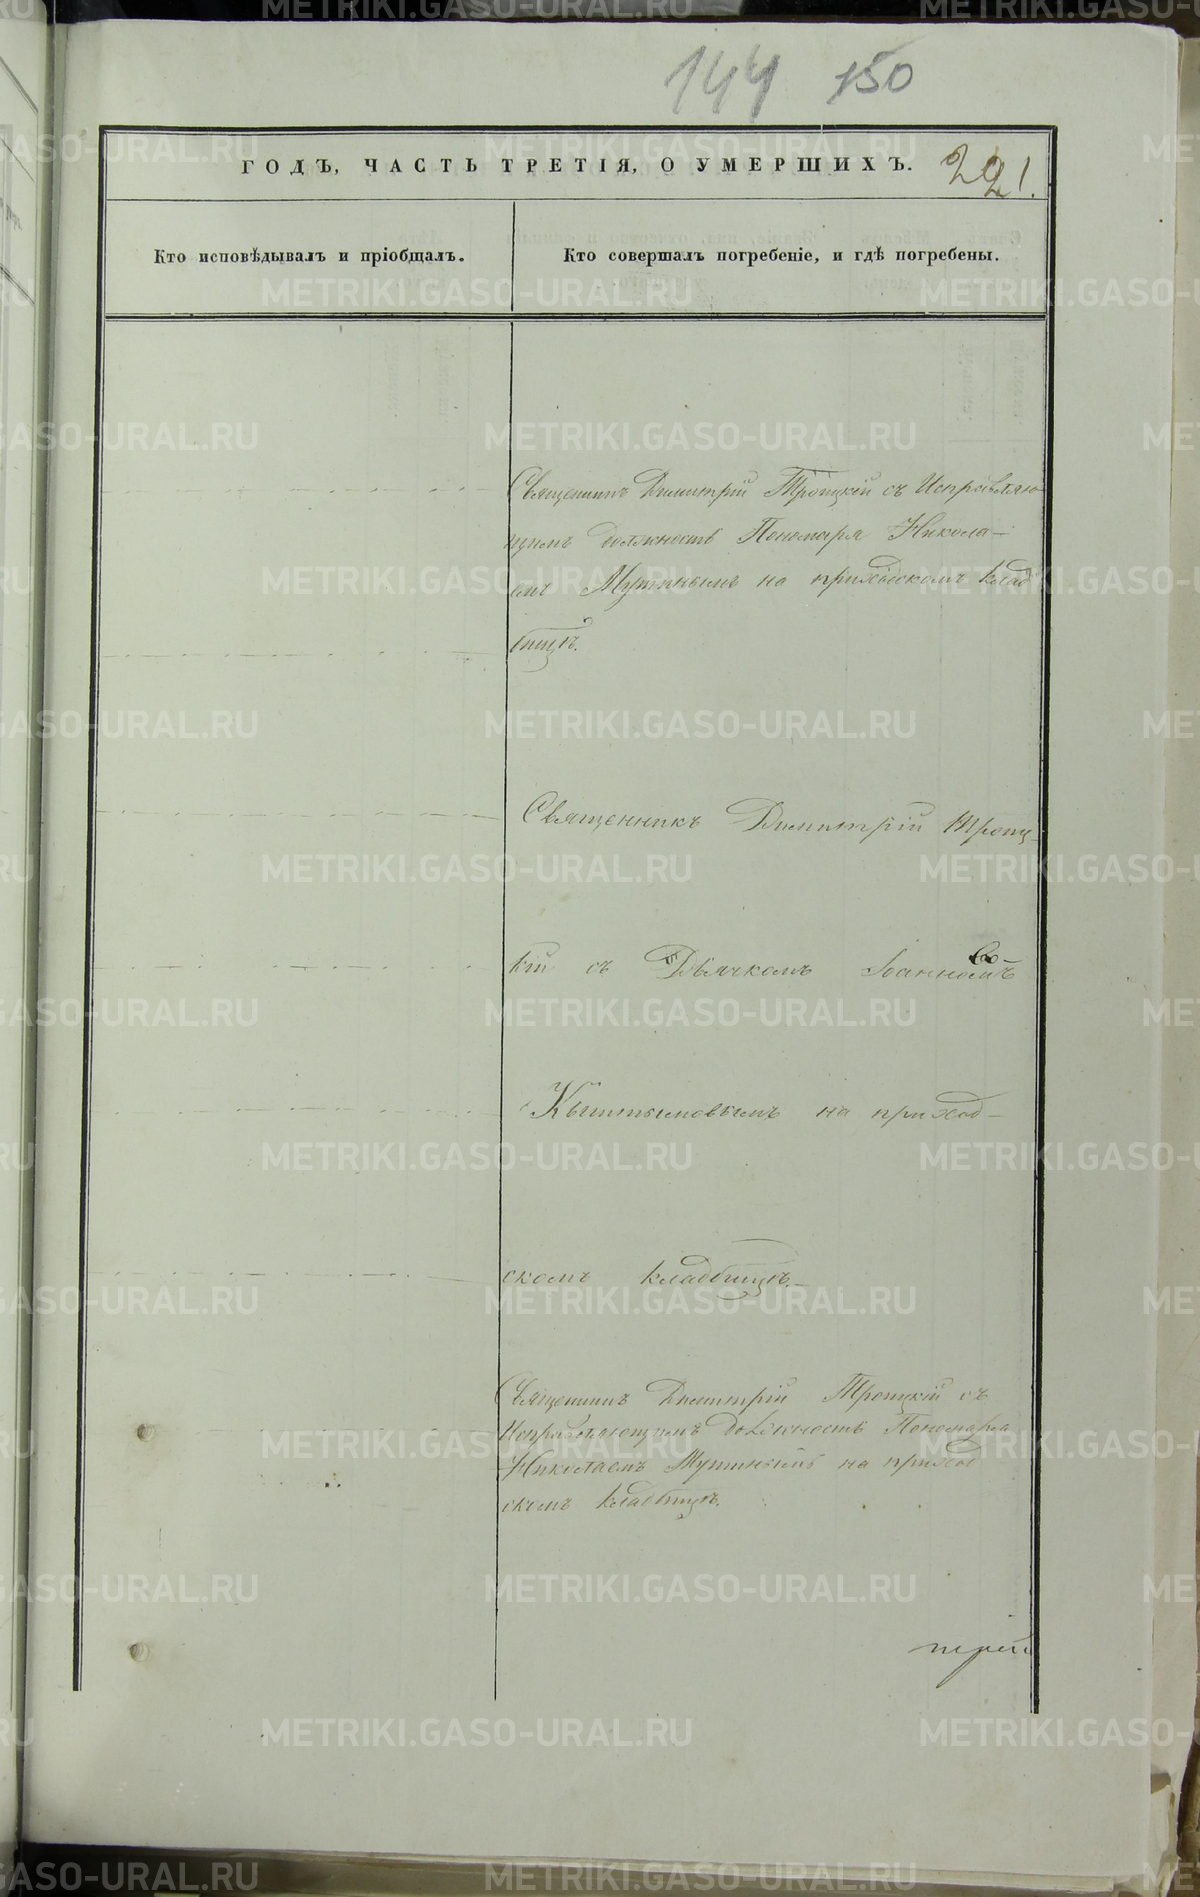 144 150
ГОДЪ, ЧАСТЬ ТРЕТІЯ, О УМЕРШИХЪ. 221.
Кто исповѣдывалъ и пріобщалъ.
Кто совершалъ погребеніе, и гдѣ погребены.
Священникъ Димитрій Троицкій съ Исправляю-
щимъ должность Пономаря Никола-
емъ Мутинымъ на приходскомъ клад
бищѣ.
Священникъ Димитрій Троиц-
кій съ Дьячкомъ Іоанномъ
Кыштымовымъ на приход-
скомъ кладбищѣ.
Священникъ Димитрій Троицкій съ
Исправляющимъ должность Пономаря
Николаемъ Мутинымъ на приход
скомъ кладбищѣ.
METRIKI.GASO-URAL.RU